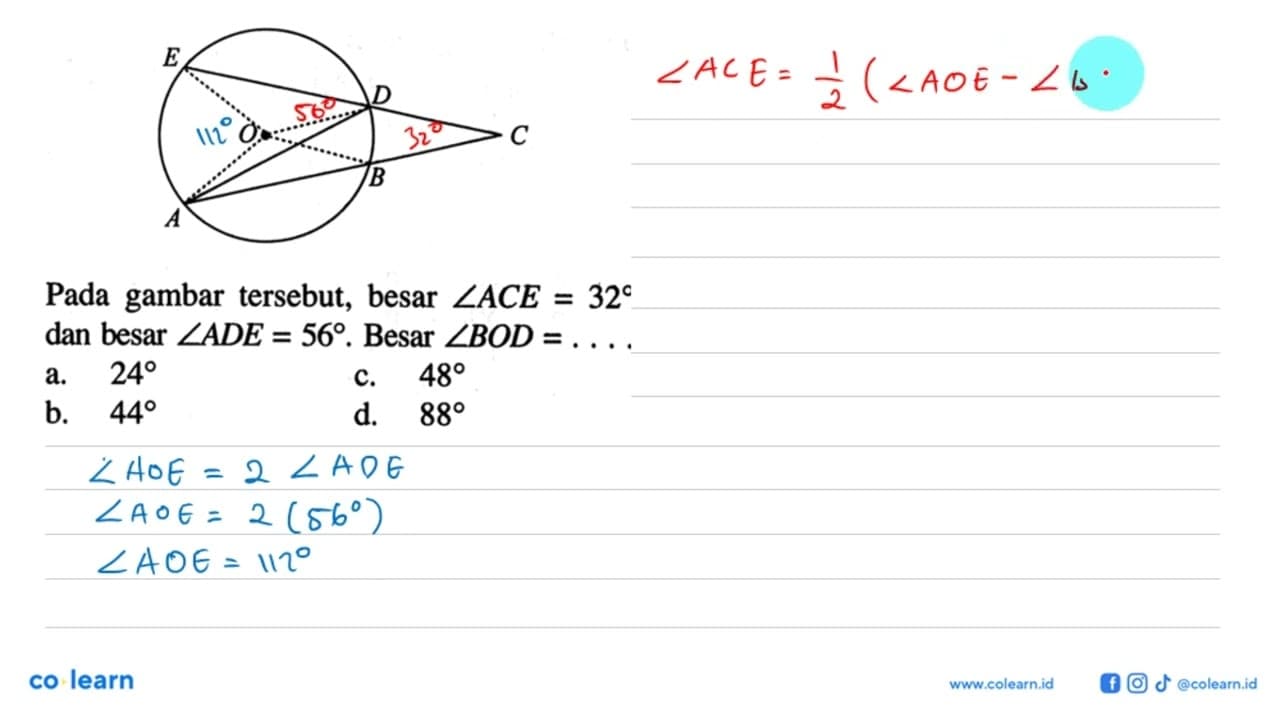 E
D
56°
112° O
32°
C
B
A
∠ACE = 1/2 (∠AOE - ∠
Pada gambar tersebut, besar ∠ACE = 32°
dan besar ∠ADE = 56°. Besar ∠BOD = . . . .
a. 24° c. 48°
b. 44° d. 88°
∠AOE = 2 ∠ADE
∠AOE = 2 (56°)
∠AOE = 112°
co learn
www.colearn.id @colearn.id